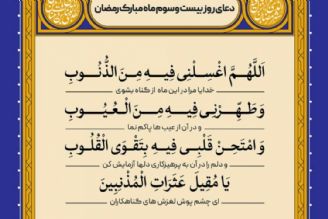 دعای روز بیست و سوم ماه مبارک رمضان
اَللّهُمَّ اغْسِلْنی فیهِ مِنَ الذُّنُوبِ
خدایا مرا در این ماه از گناه بشوی
وَ طَهِّرْنی فیهِ مِنَ الْعُیُوبِ
و در آن از عیب ها پاکم نما
وَ امْتَحِنْ قَلْبی فیهِ بِتَقْوَی الْقُلُوبِ
و دلم را در آن به پرهیزکاری دلها آزمایش کن
یا مُقیلَ عَثَراتِ الْمُذْنِبینَ
ای چشم پوش لغزش های گناهکاران